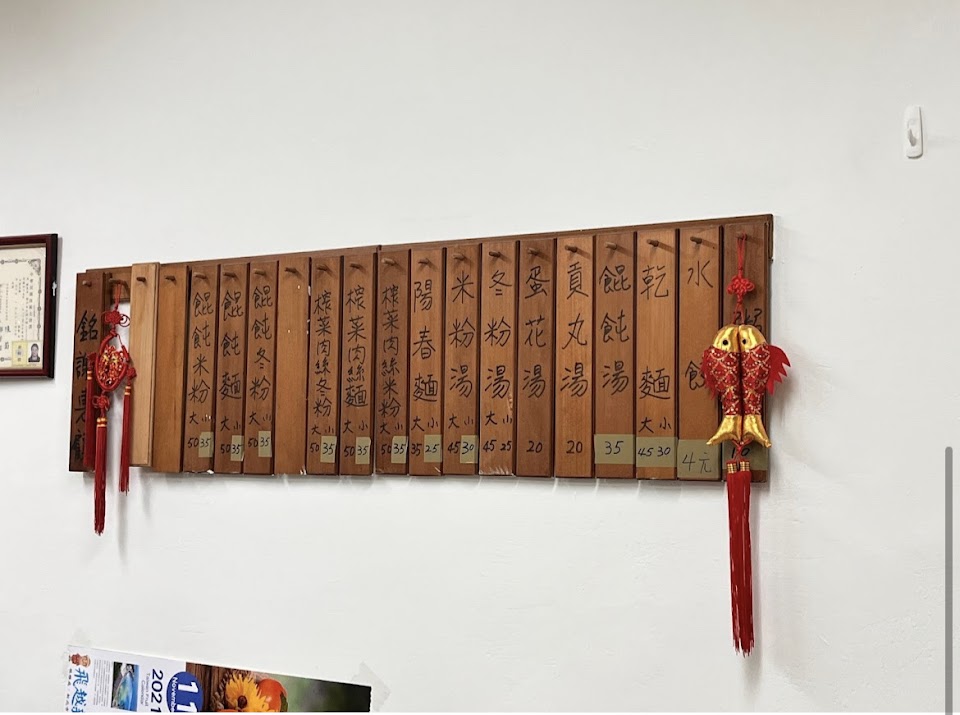 水餃
4元
乾麵
大 小
45 30
餛飩湯
35
貢丸湯
20
蛋花湯
20
冬粉湯
大 小
45 25
米粉湯
大 小
45 30
陽春麵
大 小
35 25
榨菜肉絲米粉
大 小
50 35
榨菜肉絲麵
大 小
50 35
榨菜肉絲冬粉
大 小
50 35
餛飩冬粉
大 小
50 35
餛飩麵
大 小
50 35
餛飩米粉
大 小
50 35
飛越
11
November
2021